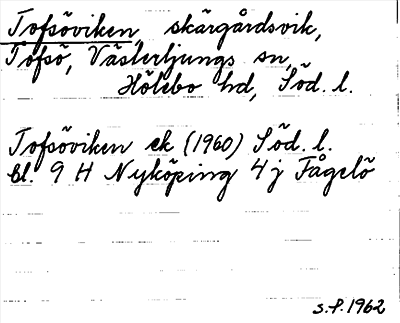 Tofsöviken, skärgårdsvik,
Tofsö, Västerljungs sn,
Hölebo hd, Söd. l.
Tofsöviken ek (1960) Söd. l.
bl. 9 H Nyköping 4 j Fågelö
s.f. 1962